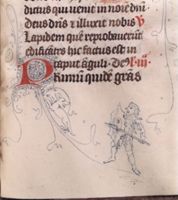 dictus qui uenit in nōie dñi
deus dñs ⁊ illuxit nobis V
Lapidem quē reprobauerūt
edificātes hic factus est in
caput āguli. Dē N. iii.
Primū quidē grās